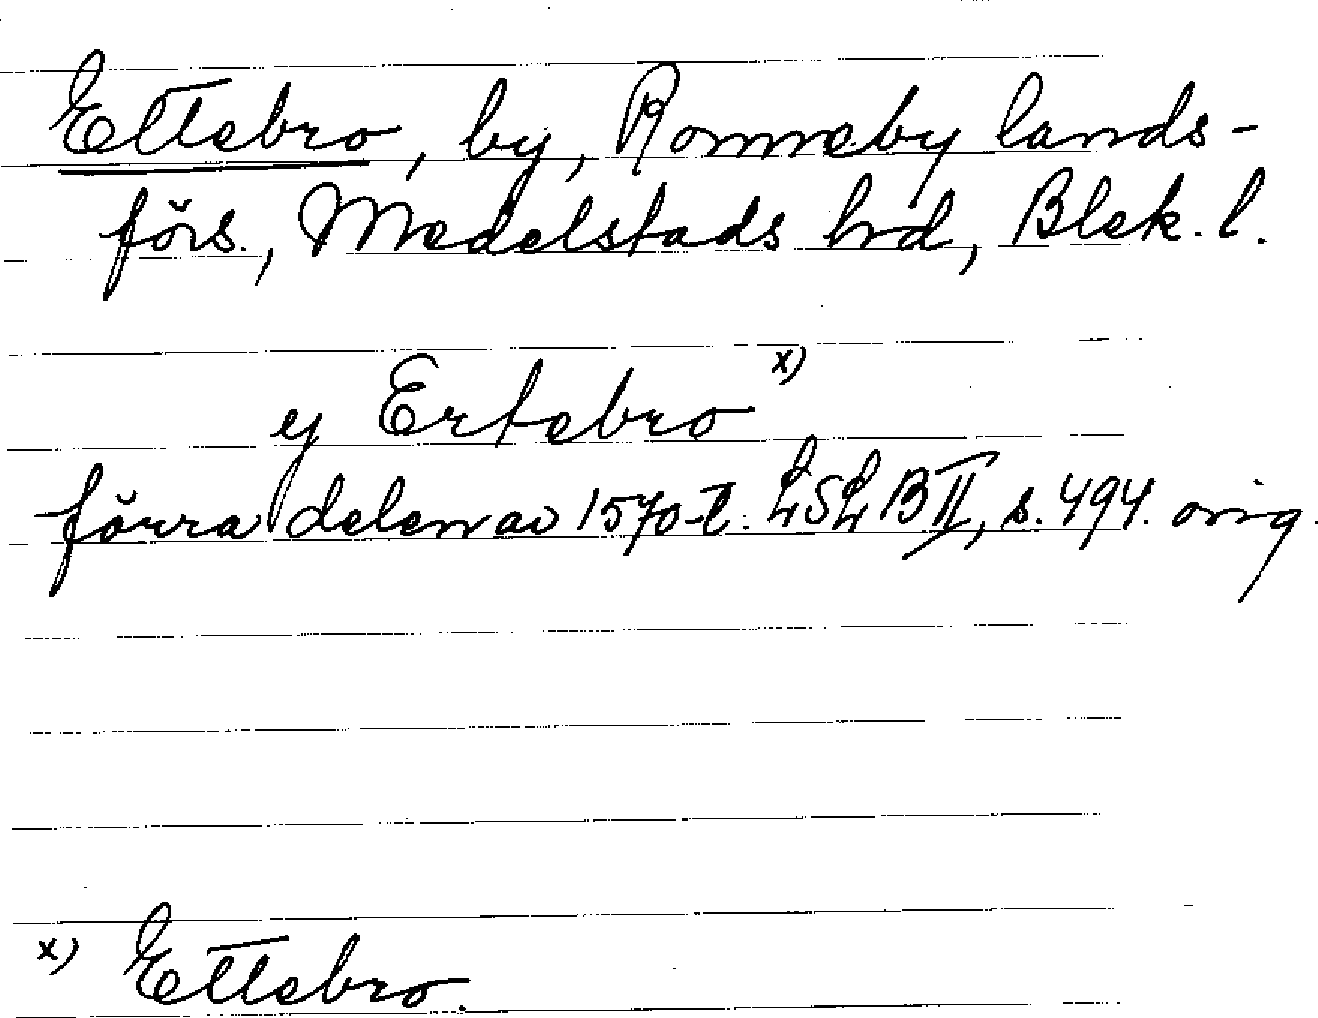 Ettebro, by, Ronneby lands-
förs., Medelstads hrd, Blek. l.
y Ertebro x)
förra delen av 1570-t. LSLB II, s. 494. orig.
x) Ettebro.